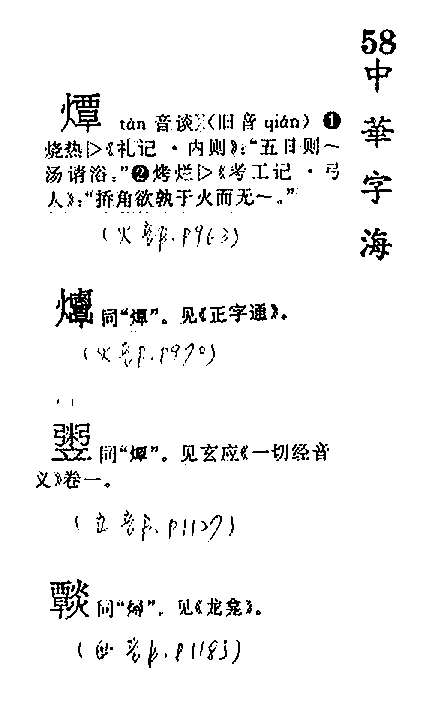 58
中華字海
燂 tán 音谈〉(旧音 qián) ❶
烧热▷《礼记·内则》:“五日则～
汤请浴。”❷烤烂▷《考工记·弓
人》:“挢角欲孰于火而无～。”
(火部.P963)
同“燂”。见《正字通》。
(火部.P970)
同“燂”。见玄应《一切经音
义》卷一。
(立部.P1127)
同“燂”。见《龙龛》。
(西部.P1183)